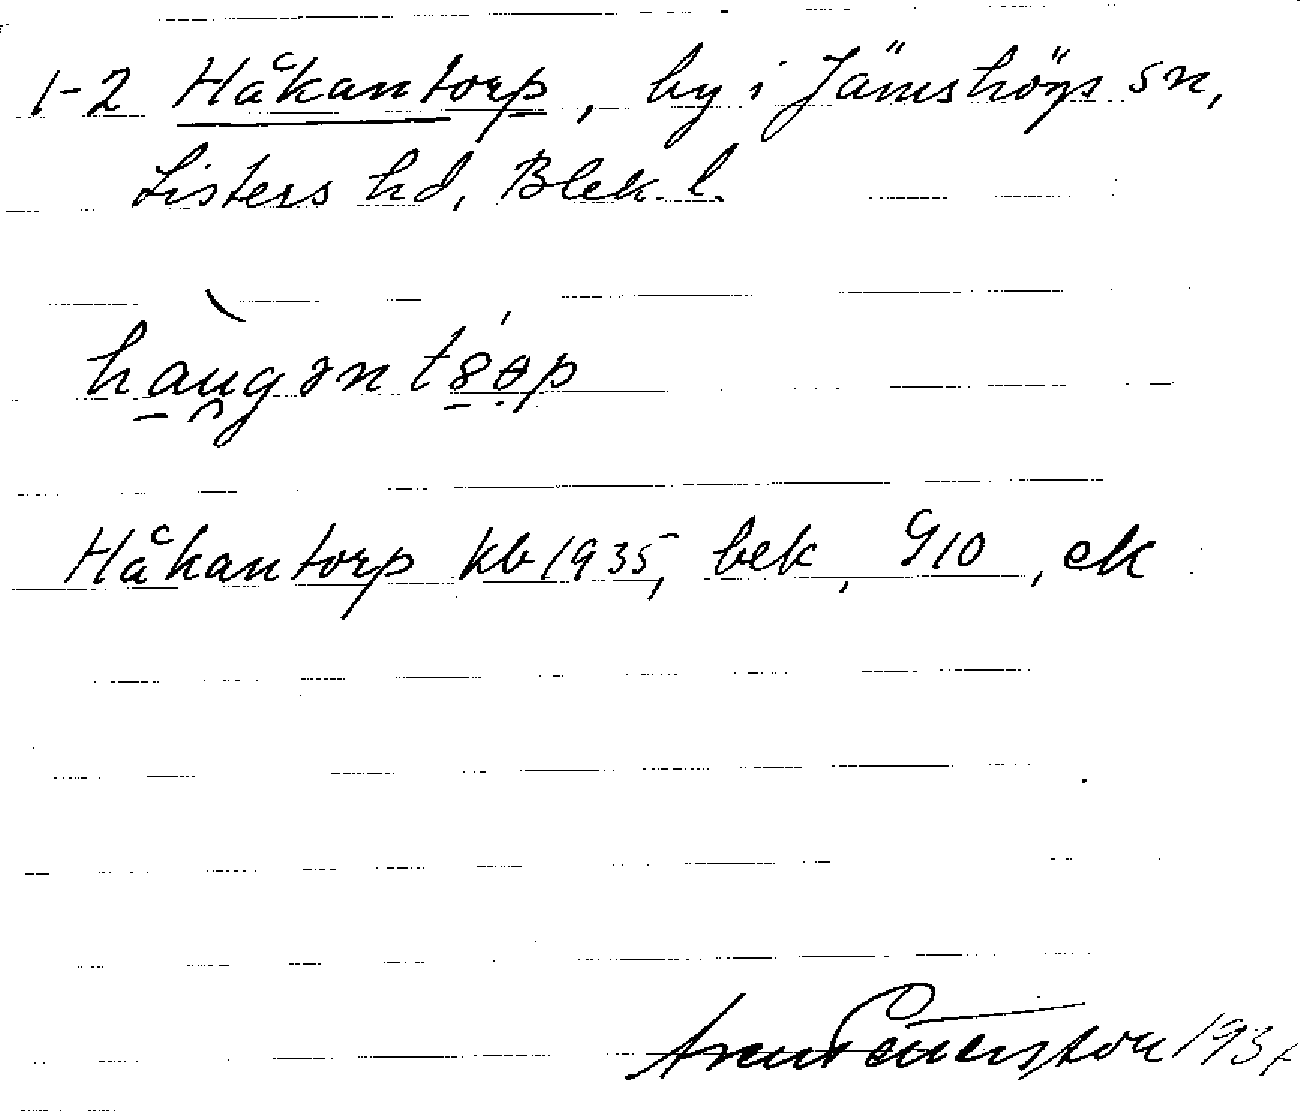 1-2 Håkantorp, by i Jämshögs sn,
Listers hd, Blek. l.
Håkantorp kb 1935, bek, G10, ek